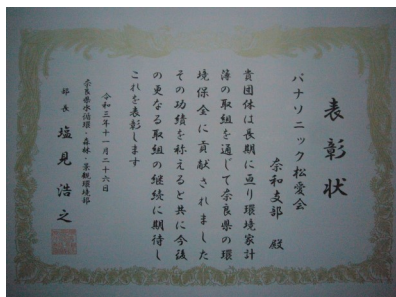 表彰状
パナソニック松愛会
奈和支部 殿
貴団体は長期に亘り環境家計
簿の取組を通じて奈良県の環
境保全に貢献されました
その功績を称えると共に今後
の更なる取組の継続に期待し
これを表彰します
令和三年十一月二十六日
奈良県水循環・森林・景観環境部
部長 塩見浩之